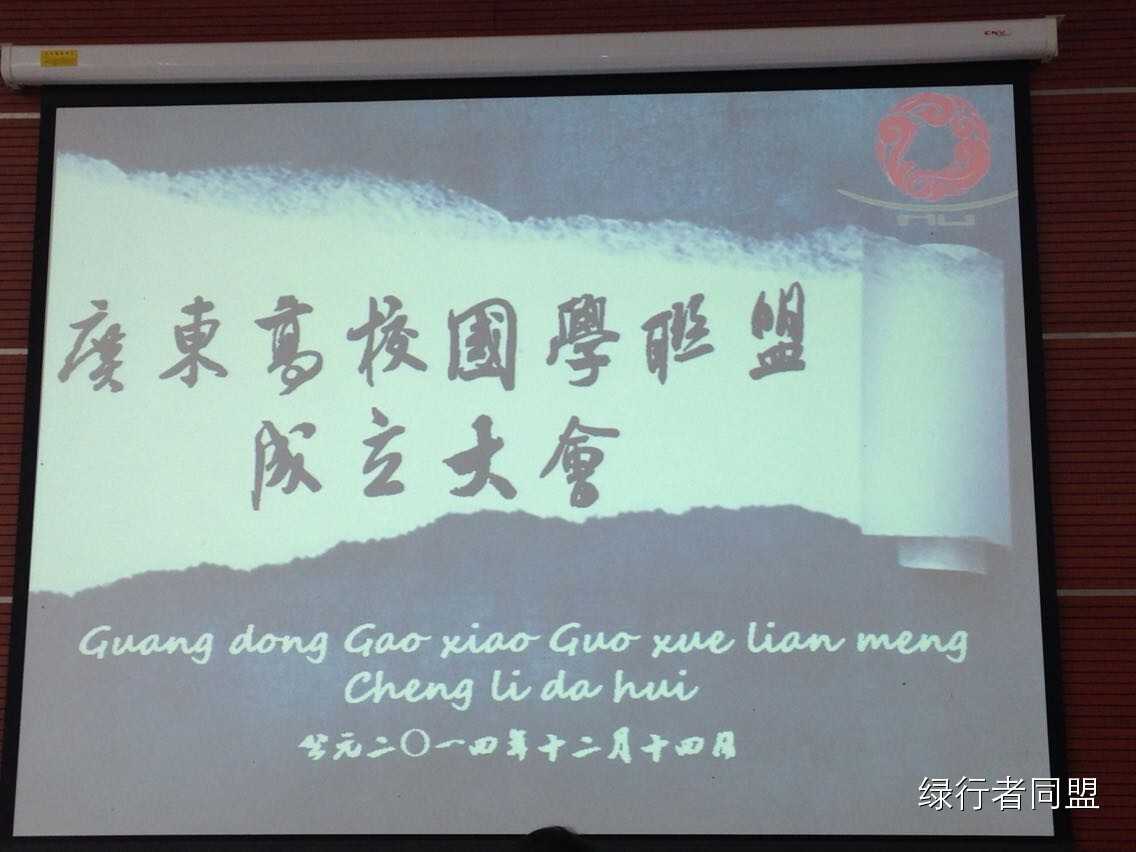 廣東高校國學聯盟
成立大會
Guang dong Gao xiao Guo xue lian meng
Cheng li da hui
公元二〇一四年十二月十四日
绿行者同盟